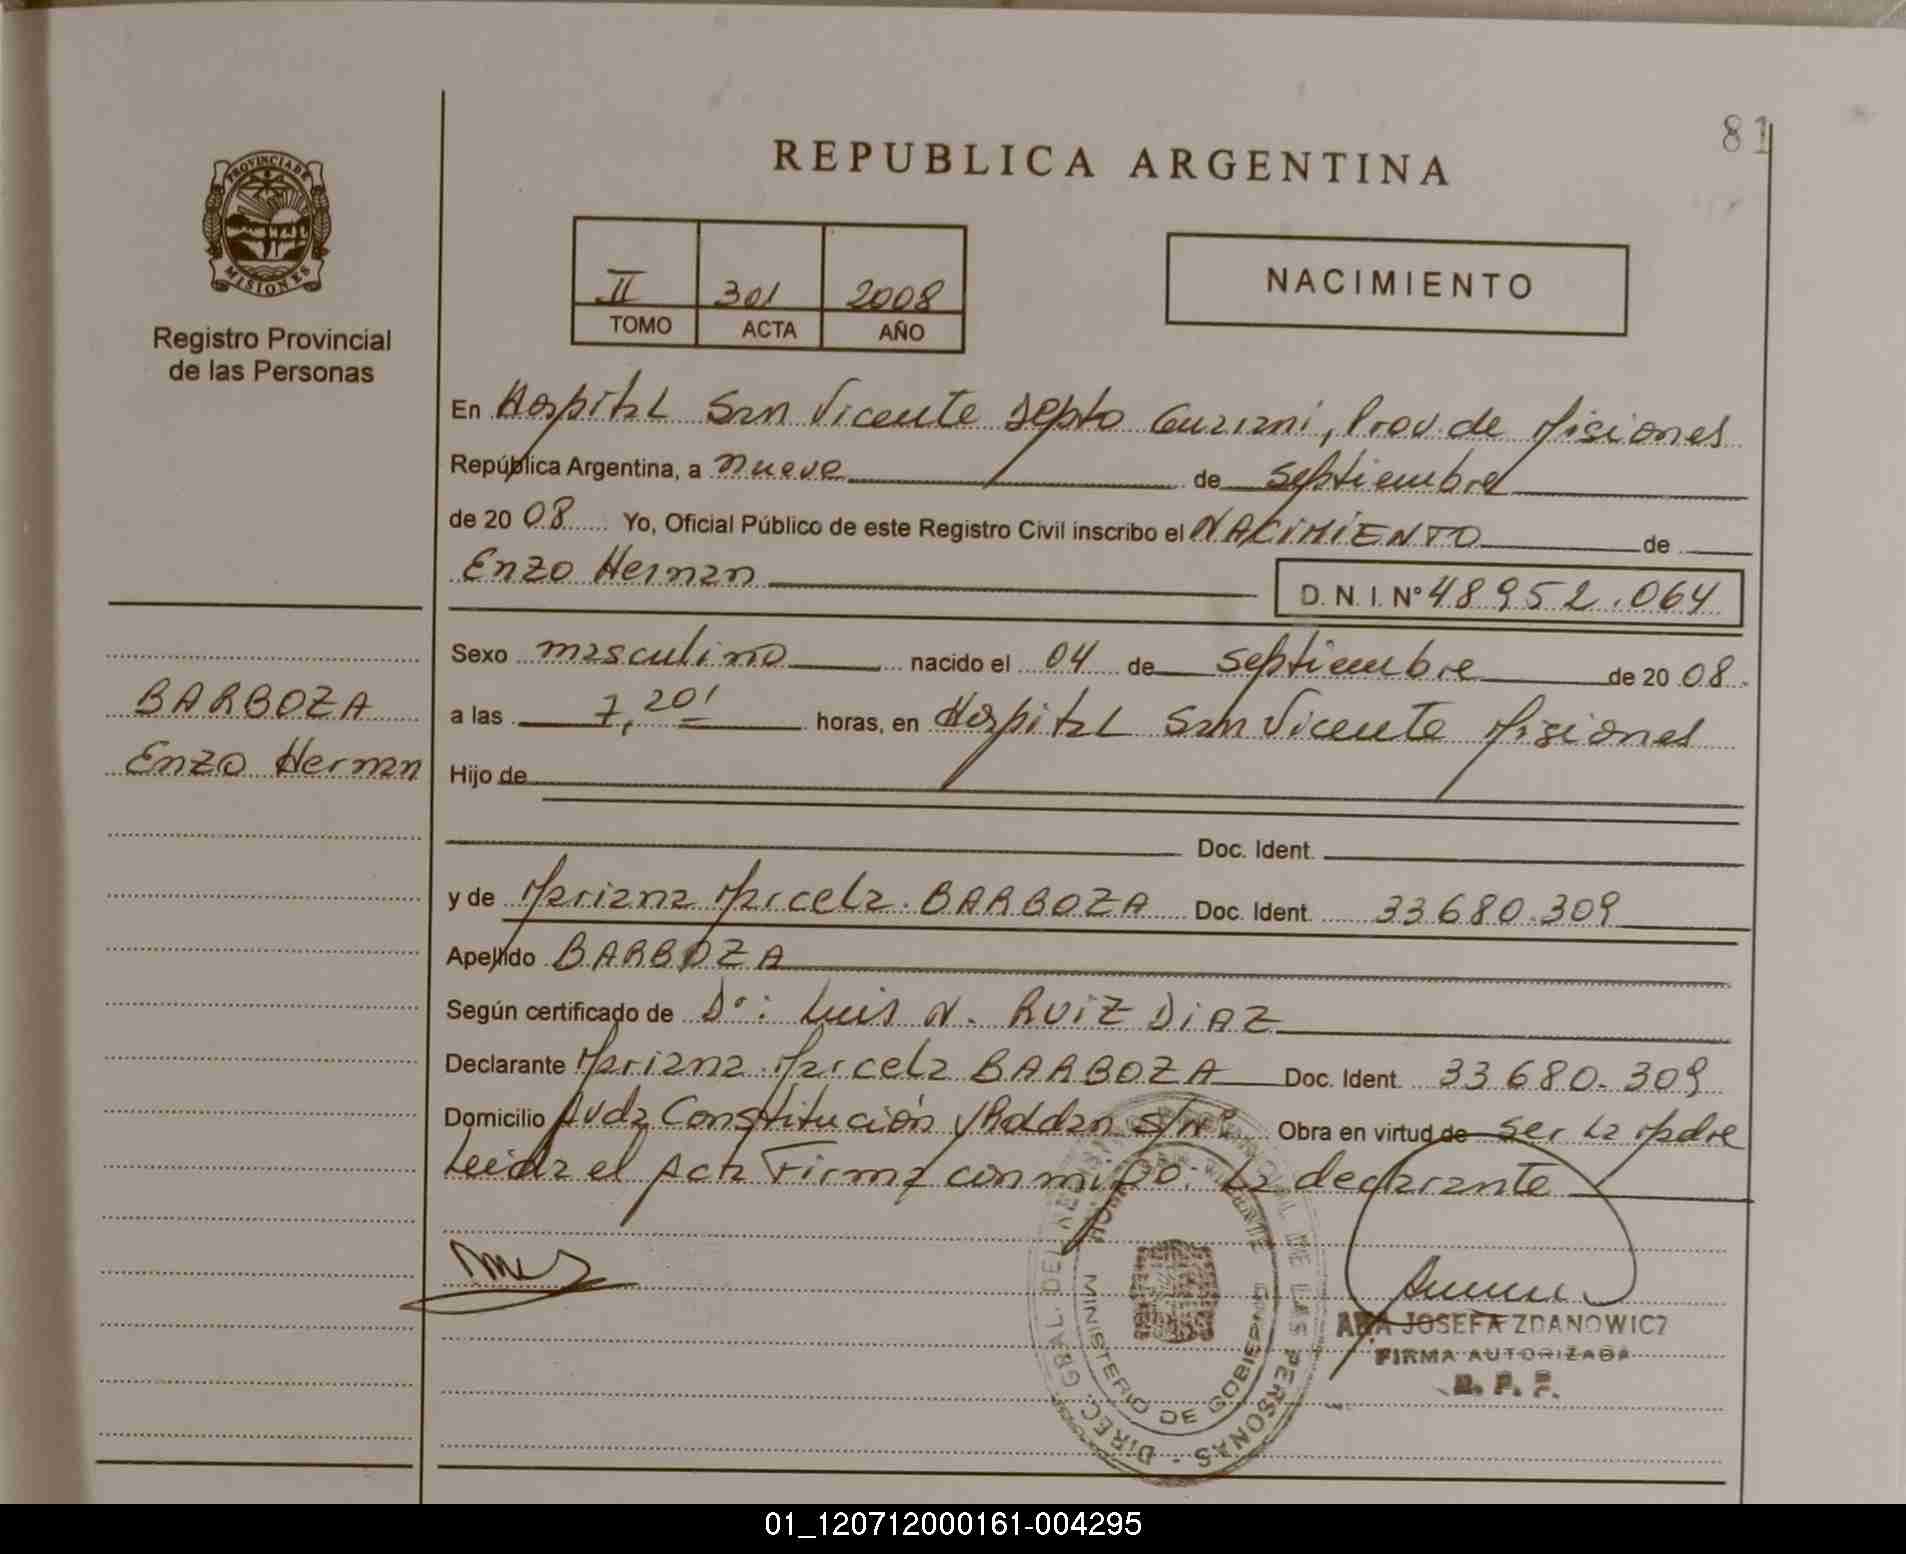 81
REPUBLICA ARGENTINA
PROVINCIA DE
MISIONES
Registro Provincial
de las Personas
II 301 2008
TOMO ACTA AÑO
NACIMIENTO
En Hospital San Vicente Depto Guarani, Prov. de Misiones
República Argentina, a nueve de septiembre
de 2008 Yo, Oficial Público de este Registro Civil inscribo el NACIMIENTO de
Enzo Hernan
D. N. I. N° 48952.064
Sexo masculino nacido el 04 de septiembre de 2008.
BARBOZA
a las 7,20' horas, en Hospital San Vicente Misiones
Enzo Hernan
Hijo de
Doc. Ident.
y de Mariana Marcela BARBOZA Doc. Ident. 33680.309
Apellido BARBOZA
Según certificado de Dr: Luis N. RUIZ DIAZ
Declarante Mariana Marcela BARBOZA Doc. Ident. 33680.309
Domicilio Avda Constitución y Roldan s/n° Obra en virtud de ser la Madre
Leida el Acta Firma conmigo: La declarante
DIREC. GRAL. DE LAS PERSONAS
MINISTERIO DE GOBIERNO
ANA JOSEFA ZDANOWICZ
FIRMA AUTORIZADA
R. P. P.
01_120712000161-004295